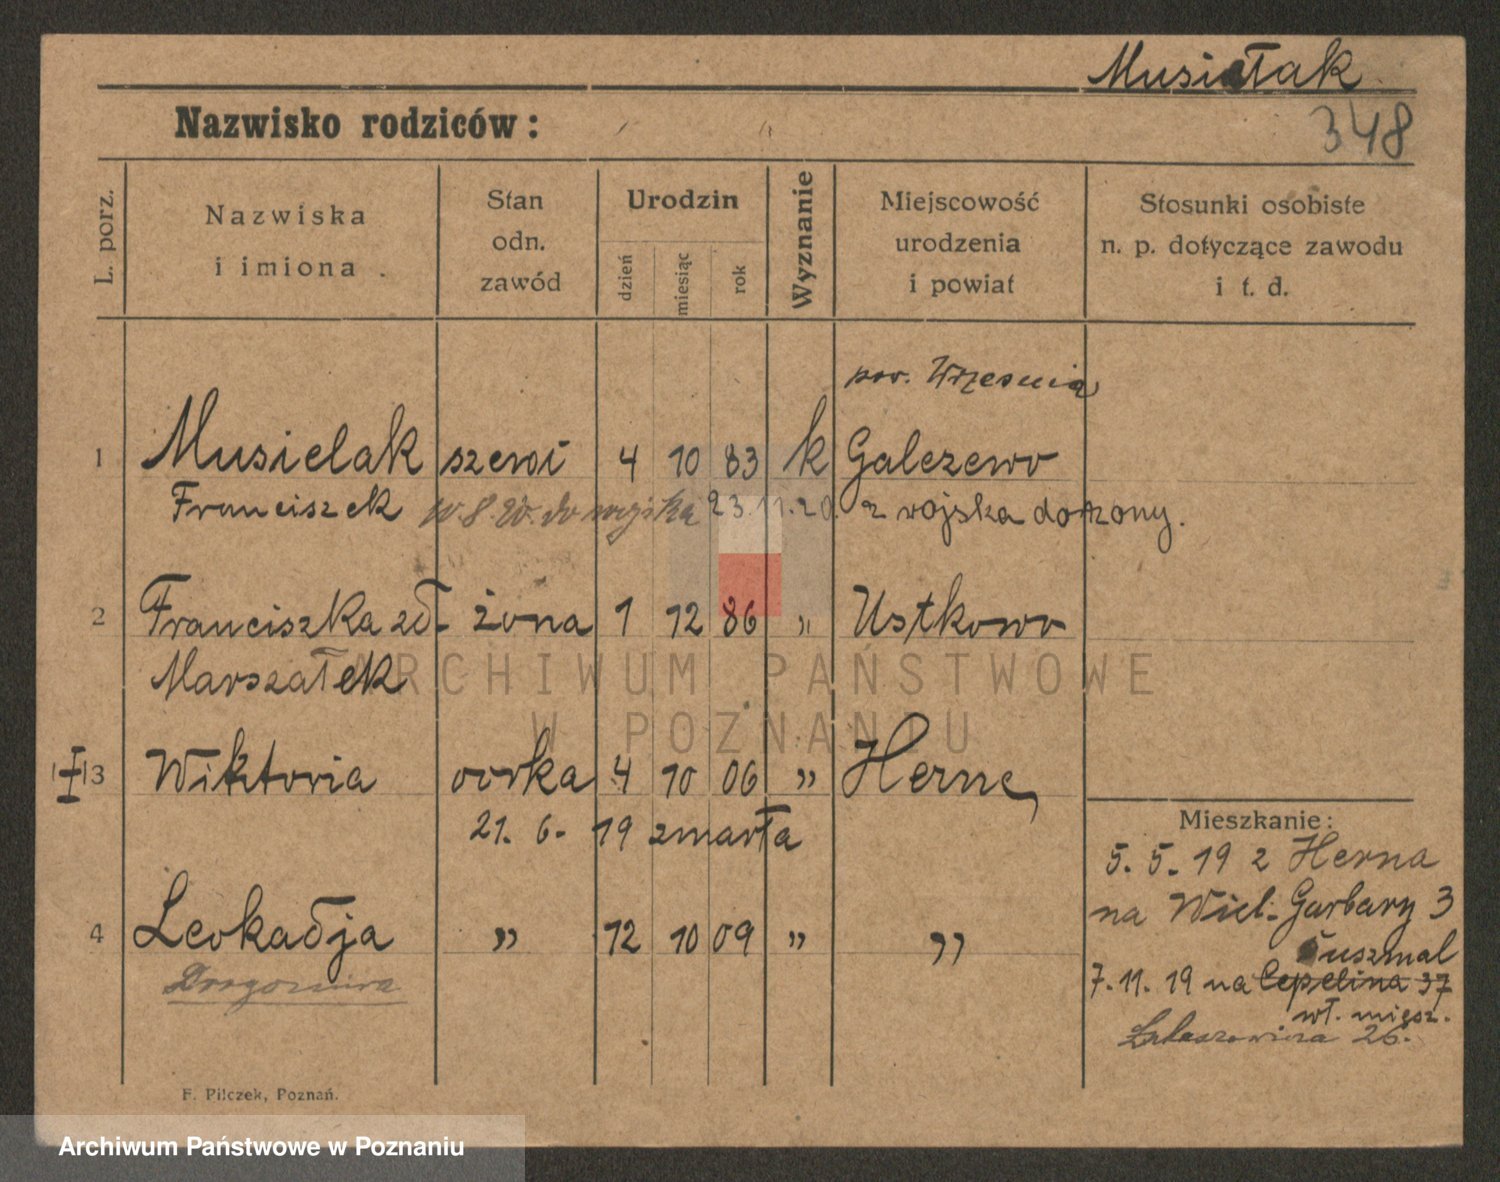 Musiałak
348
Nazwisko rodziców:
L. porz.
Nazwiska
i imiona
Stan
odn.
zawód
Urodzin
dzień
miesiąc
rok
Wyznanie
Miejscowość
urodzenia
i powiat
Stosunki osobiste
n. p. dotyczące zawodu
i t. d.
pow. Wrzesnia
1 Musielak 4 10 83 k Galezewo
Franciszek do wojska 23.11.20. z wojska
2 Franciszka zd. żona 1 12 86 „ Ustkowo
Marszałek
3 Wiktoria córka 4 10 06 „ Herne
21. 6. 19 zmarła
4 Leokadja „ 12 10 09 „ „
Mieszkanie:
5. 5. 19 z Herna
na Wiel. Garbary 3
7. 11. 19 na Cepelina 37
wł. miesz.
26.
F. Pilczek, Poznań.
ARCHIWUM PAŃSTWOWE
W POZNANIU
Archiwum Państwowe w Poznaniu